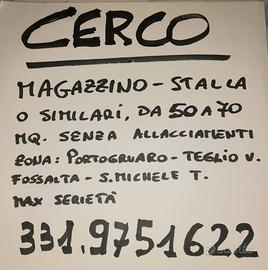 CERCO
MAGAZZINO - STALLA
O SIMILARI, DA 50 A 70
MQ. SENZA ALLACCIAMENTI
ZONA: PORTOGRUARO - TEGLIO V.
FOSSALTA - S. MICHELE T.
MAX SERIETÀ
331.9751622